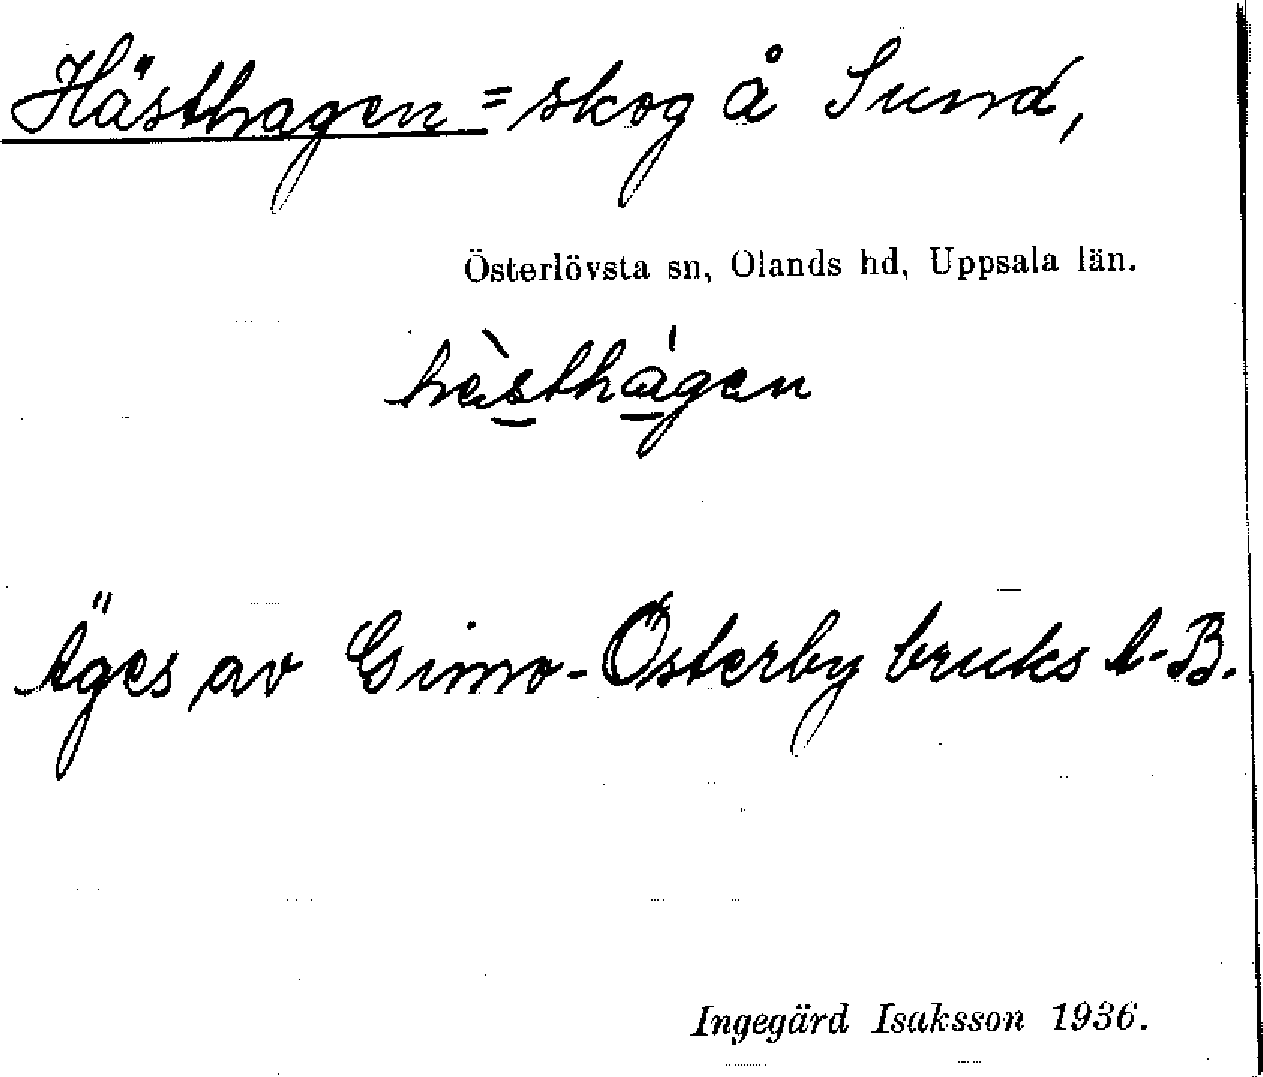 Hästhagen = skog å Sund,
Österlövsta sn, Olands hd, Uppsala län.
hès̱thá̱gen
Äges av Gimo-Österby bruks A-B.
Ingegärd Isaksson 1936.